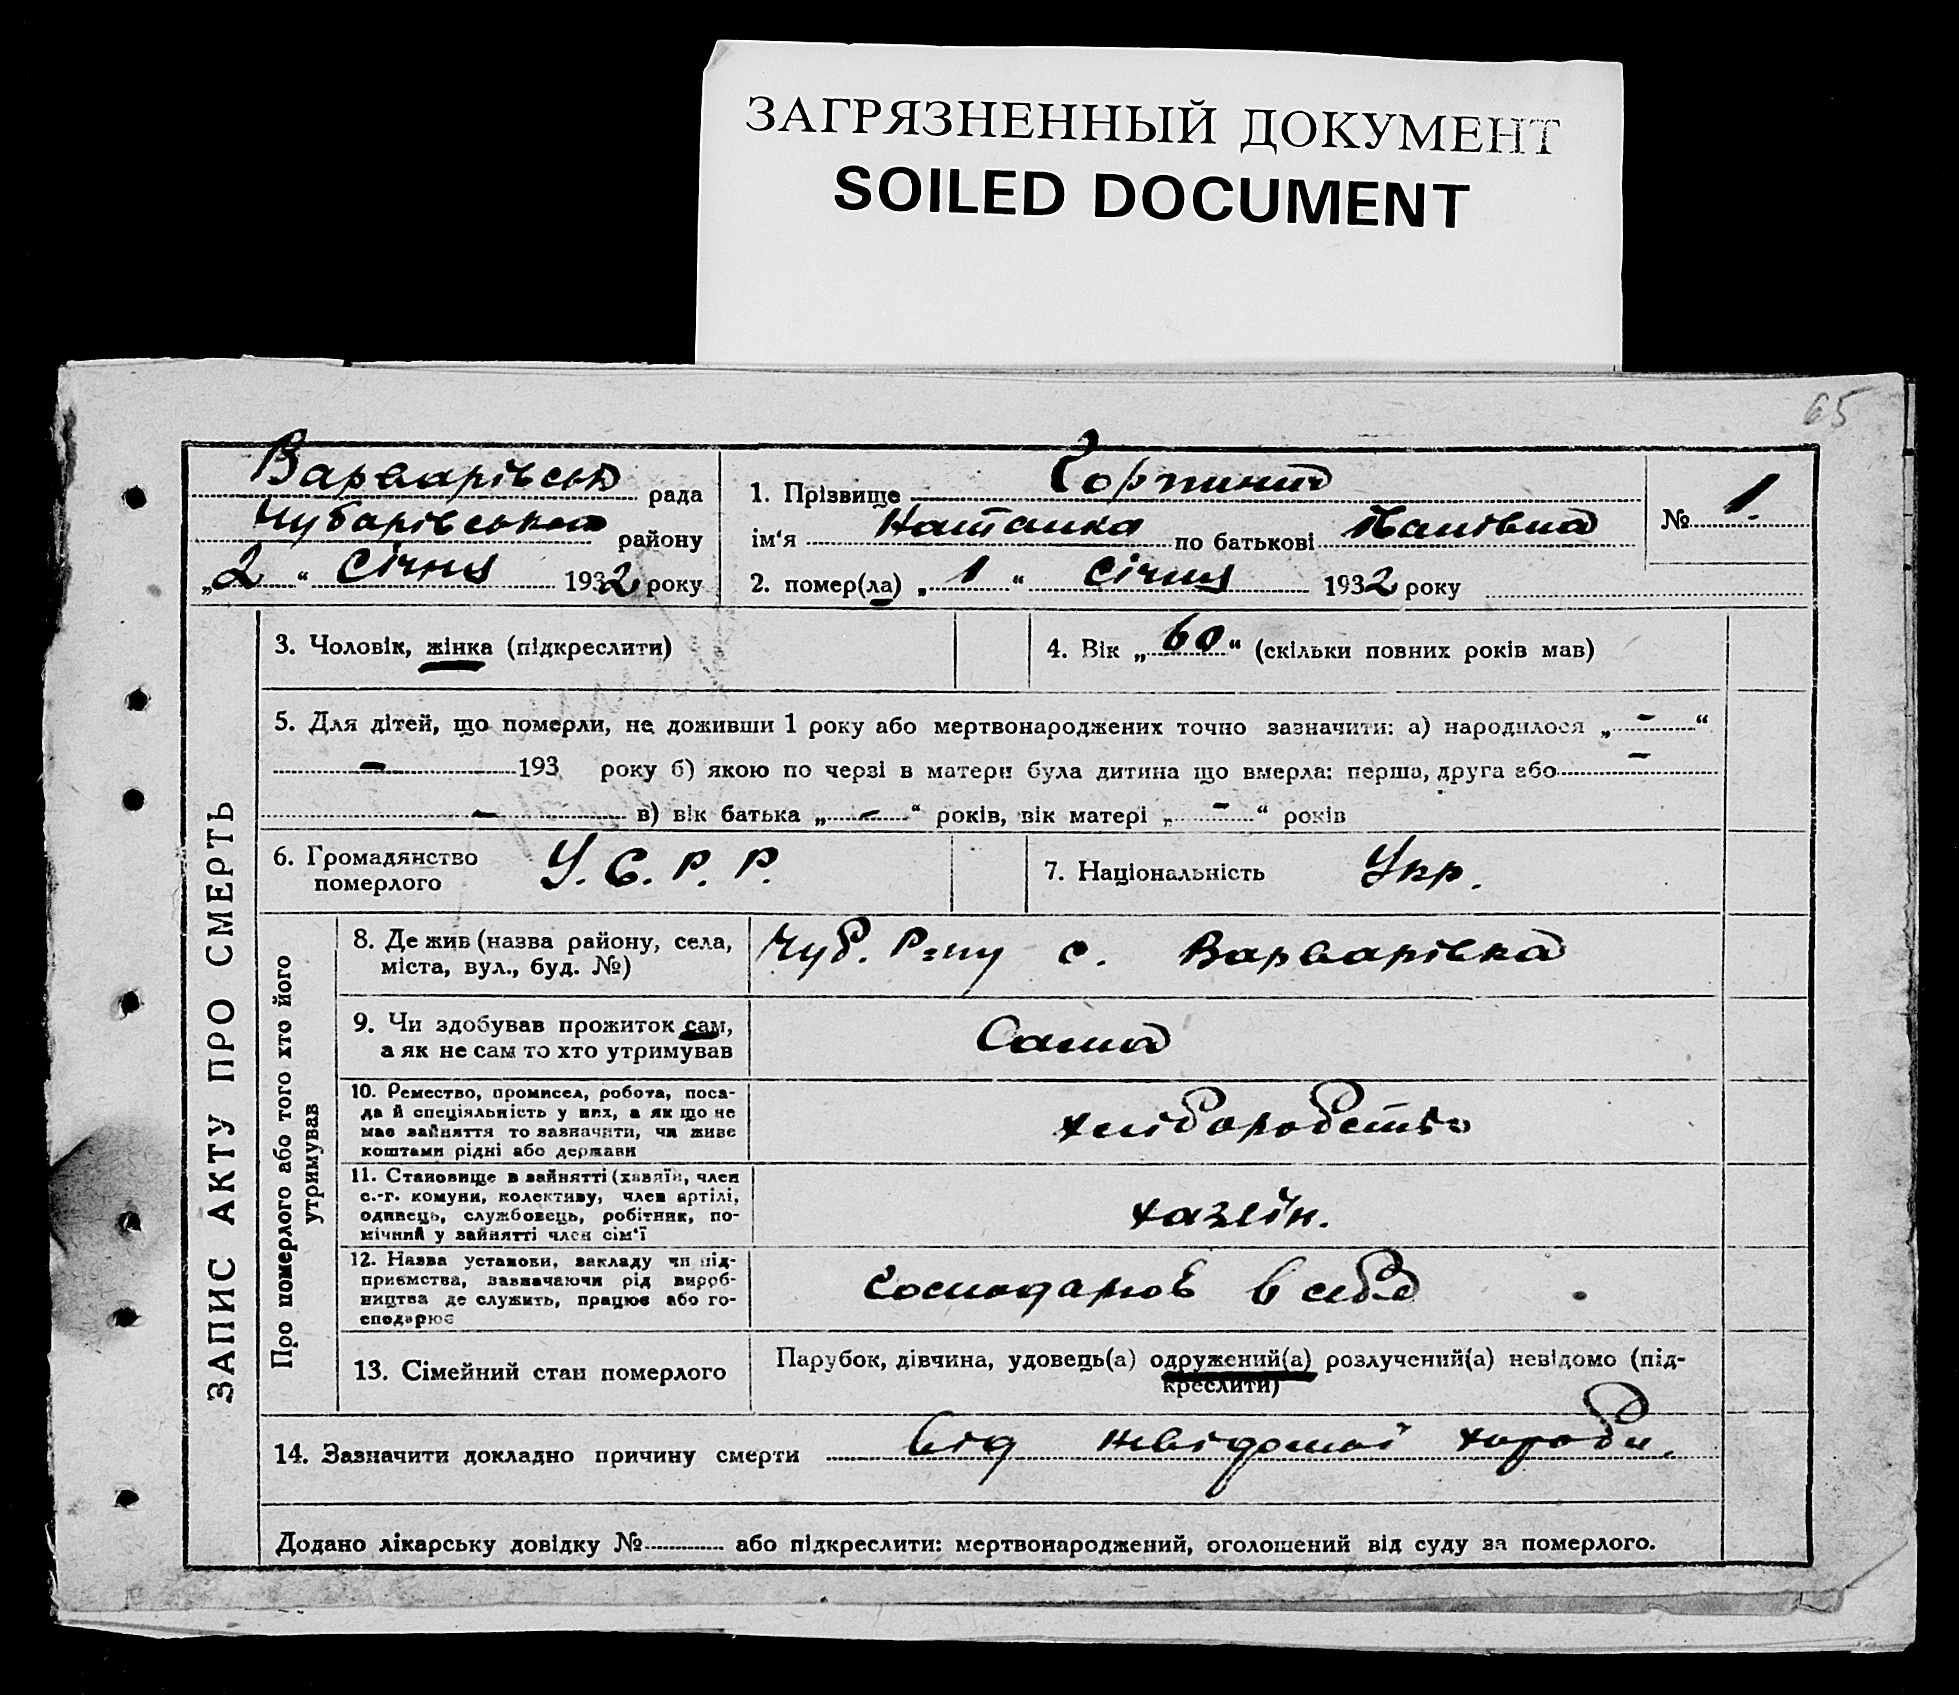 ЗАГРЯЗНЕННЫЙ ДОКУМЕНТ
SOILED DOCUMENT
65
Варварівська рада
Чубарівського району
„2“ Січня 1932 року
1. Прізвище
ім'я Наталка по батькові
2. помер(ла) „1“ Січня 1932 року
№ 1.
ЗАПИС АКТУ ПРО СМЕРТЬ
3. Чоловік, жінка (підкреслити)
4. Вік „60“ (скільки повних років мав)
5. Для дітей, що померли, не доживши 1 року або мертвонароджених точно зазначити: а) народилося „-“
- 193 року б) якою по черзі в матери була дитина що вмерла: перша, друга або -
- в) вік батька „-“ років, вік матері „-“ років
6. Громадянство
померлого У.С.Р.Р.
7. Національність Укр.
Про померлого або того хто його
утримував
8. Де жив (назва району, села,
міста, вул., буд. №)
Чуб. Р=ну с. Варварівка
9. Чи здобував прожиток сам,
а як не сам то хто утримував
Сама
10. Ремество, промисел, робота, поса-
да й спеціяльність у них, а як що не
має зайняття то зазначити, чи живе
коштами рідні або держави
хліборобство
11. Становище в зайнятті (хазяїн, член
с.-г. комуни, колективу, член артілі,
одинець, службовець, робітник, по-
мічний у зайнятті член сім'ї
хазяїн.
12. Назва установи, закладу чи під-
приємства, зазначаючи рід вироб-
ництва де служить, працює або го-
сподарює
Господарює в себе
13. Сімейний стан померлого
Парубок, дівчина, удовець(а) одружений(а) розлучений(а) невідомо (під-
креслити)
14. Зазначити докладно причину смерти від невідомої хороби.
Додано лікарську довідку № або підкреслити: мертвонароджений, оголошений від суду за померлого.